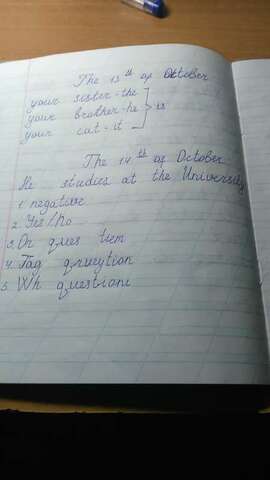 The 13th of October
your sister-the
your brother-he > is
your cat-it
The 14th of October
He studies at the University
1. negative
2. Yes/No
3. Or ques tiem
4. Tag queytion
5. Wh questiani